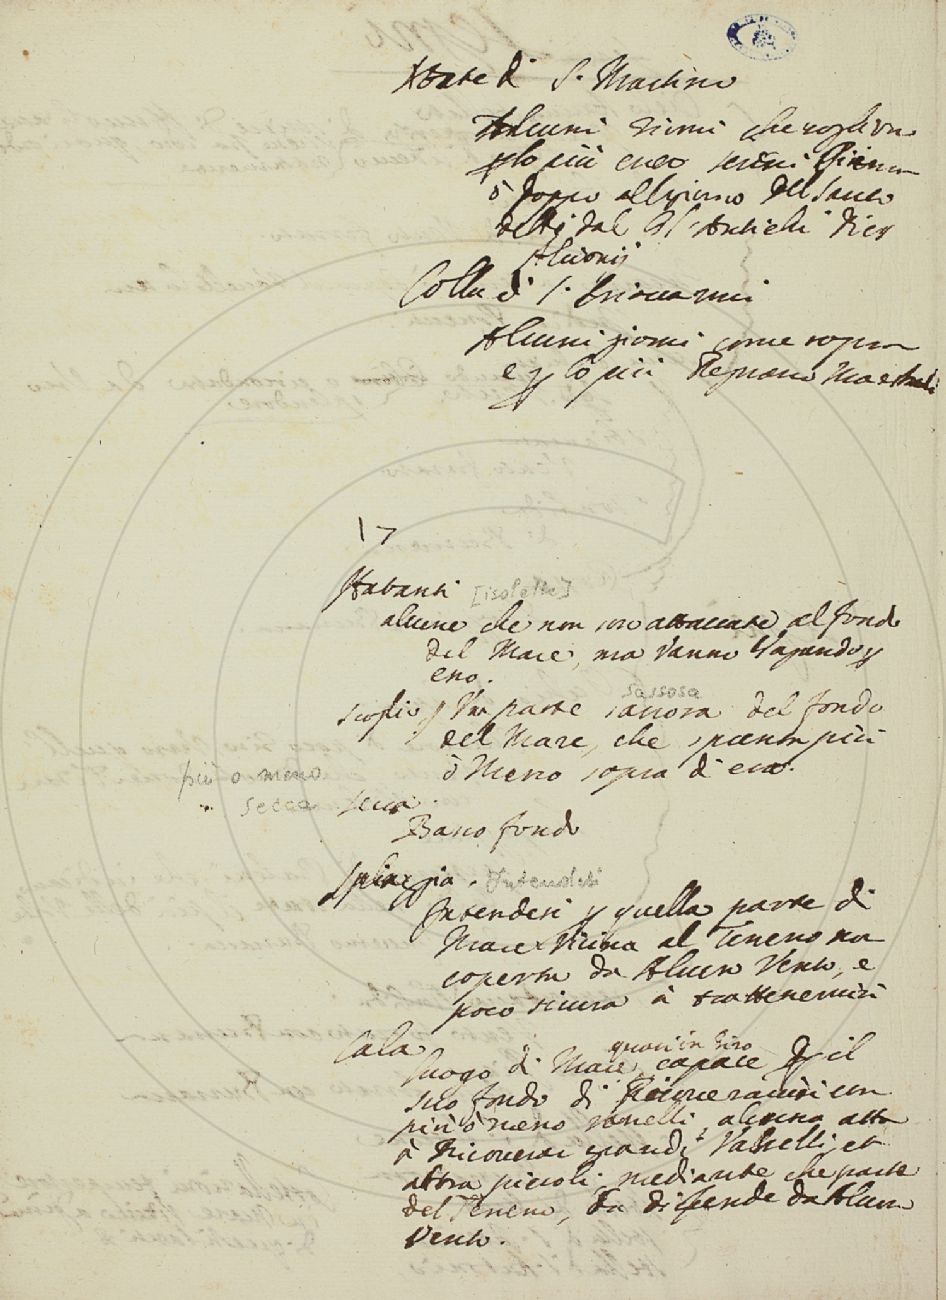 State di S. Martino
Alcuni giorni che sogliono
p lo più esser sereni
ò doppo al giorno del Santo
detti dal Gl'Antichi dies
Alcionij
Colla di S.
Alcuni giorni come sopra
e p lo più Regnano Maestrali
17
[isolette]
alcune che non sono attaccate al fondo
del Mare, ma vanno Vagando p
esso.
sassosa
scoglio p Una parte sassosa del fondo
del Mare, che spunta più
ò Meno sopra di esso.
più o meno
secca
secca.
Basso fondo
Spiaggia. Intendesi
Intendesi p quella parte di
Mare Vicina al Terreno non
coperta da Alcun Vento, e
poco sicura à trattenervisi
Cala
quasi in Giro
luogo di Mare, capace p il
suo fondo di Ricoverarvisi un
più ò meno Vasselli, alcuna atta
à Ricoverar grandi Vasselli, et
altra piccoli, mediante che parte
del Terreno, la difende da Alcun
Vento.